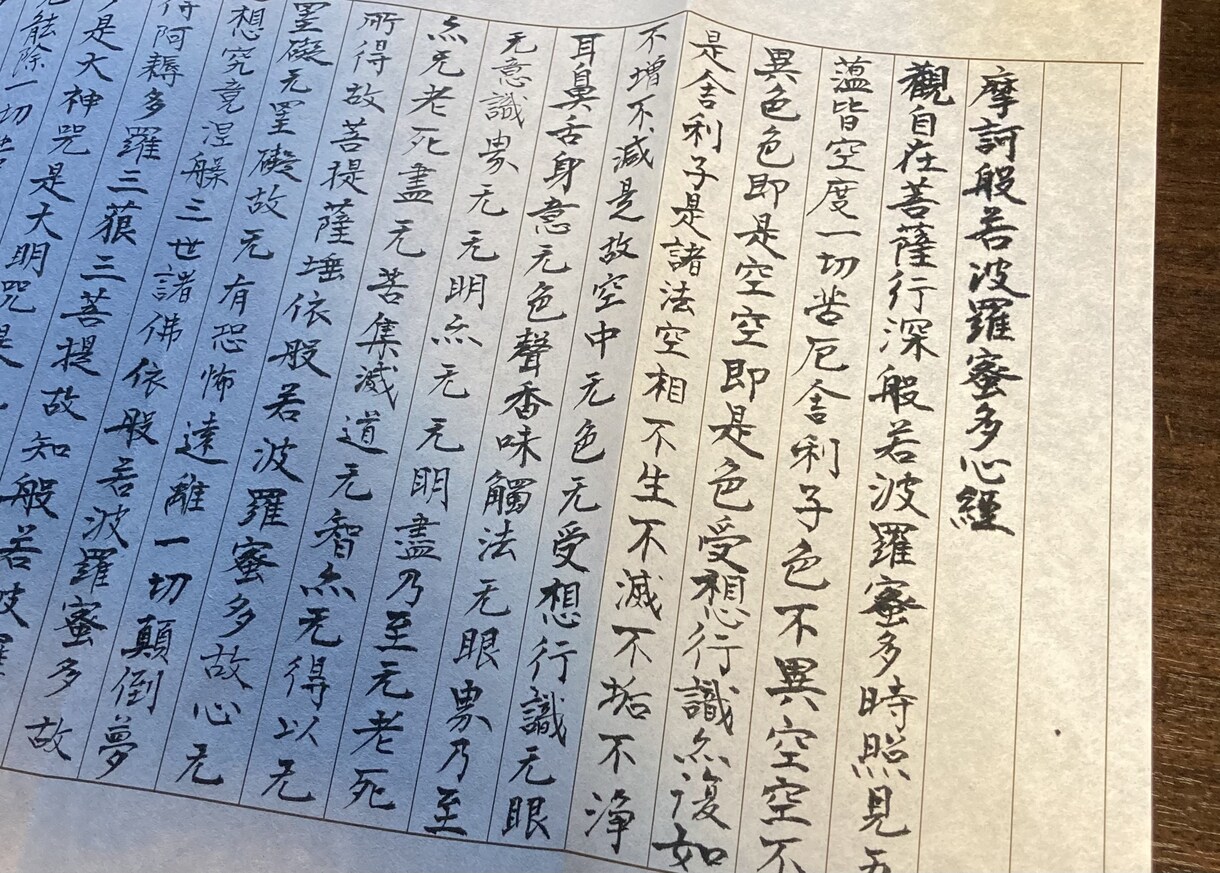 摩訶般若波羅蜜多心經
觀自在菩薩行深般若波羅蜜多時照見五
蕰皆空度一切苦厄舎利子色不異空空不
異色色即是空空即是色受想行識亦復如
是舎利子是諸法空相不生不滅不垢不淨
不增不減是故空中无色无受想行識无眼
耳鼻舌身意无色聲香味觸法无眼界乃至
无意識界无无明亦无无明盡乃至无老死
亦无老死盡无苦集滅道无智亦无得以无
所得故菩提薩埵依般若波羅蜜多故心无
罣礙无罣礙故无有恐怖遠離一切顛倒夢
想究竟涅槃三世諸佛依般若波羅蜜多故
得阿耨多羅三藐三菩提故知般若波羅
是大神咒是大明咒是
能除一切